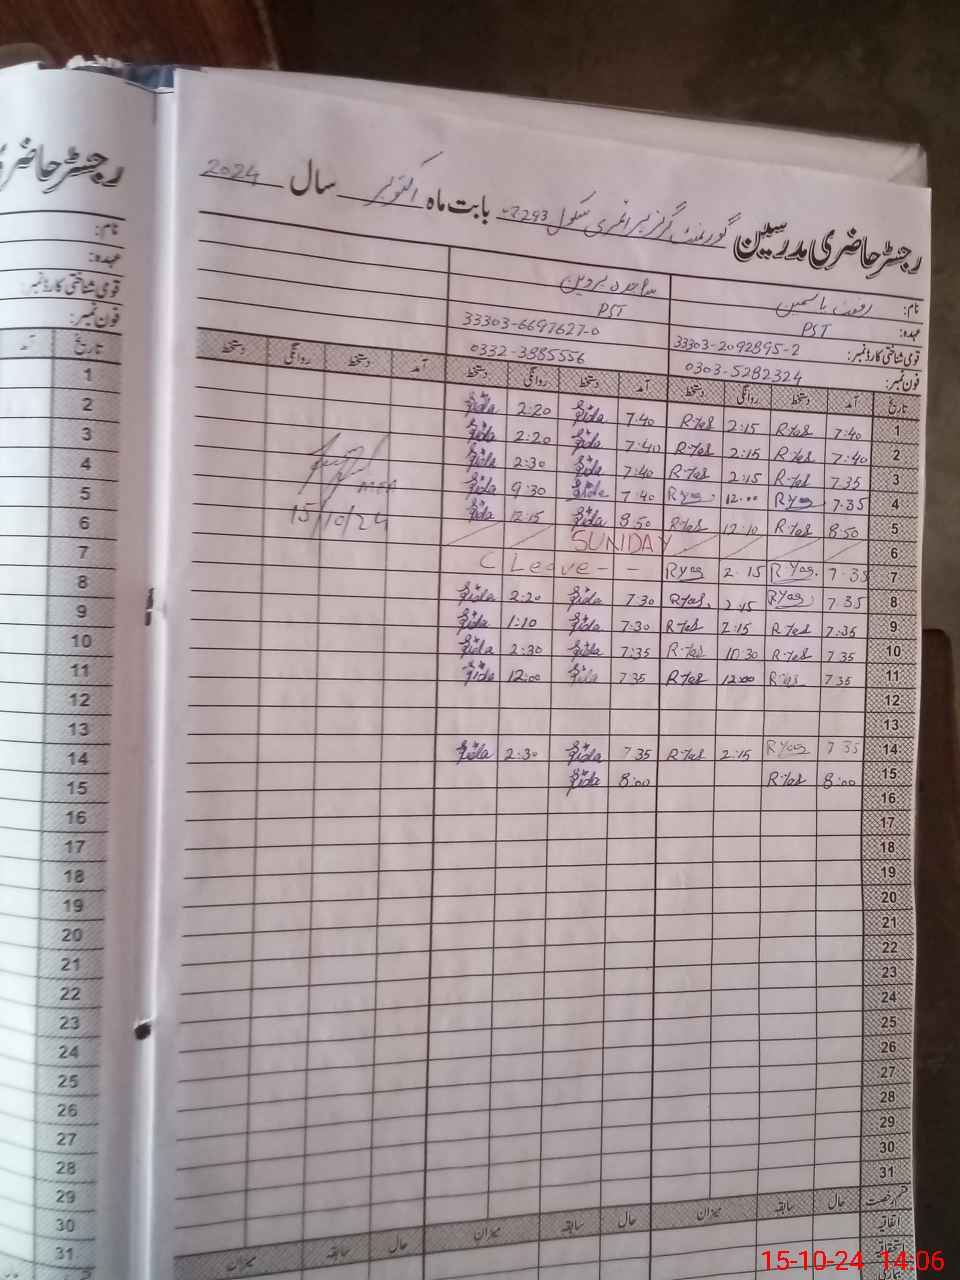 رجسٹر حاضری مدرسین گورنمنٹ گرلز پرائمری سکول بابت ماہ اکتوبر سال 2024
نام: رفعت یاسمین ساجدہ پروین
عہدہ: PST PST
قومی شناختی کارڈ نمبر: 33303-2092895-2 33303-6697627-0
فون نمبر: 0303-5282324 0332-3885556
تاریخ آمد دستخط روانگی دستخط آمد دستخط روانگی دستخط آمد دستخط روانگی دستخط
1 7:40 2:15 7:40 2:20
2 7:40 2:15 7:40 2:20
3 7:35 2:15 7:40 2:30
4 7:35 12:00 7:40 9:30
5 8:50 12:10 8:50 12:15
6 SUNDAY
7 7:35 2:15 C Leave - -
8 7:35 2:15 7:30 2:20
9 7:35 2:15 7:30 1:10
10 7 35 10 30 7:35 2:30
11 7 35 12:00 7 35 12:00
12
13
14 7 35 2:15 7 35 2:30
15 8:00 8:00
16
17
18
19
20
21
22
23
24
25
26
27
28
29
30
31
قسم رخصت حال سابقہ میزان حال سابقہ میزان حال سابقہ میزان
اتفاقیہ
استحقاقیہ
15/10/24
رجسٹر حاضری
نام:
عہدہ:
قومی شناختی کارڈ نمبر:
فون نمبر:
تاریخ آمد
1
2
3
4
5
6
7
8
9
10
11
12
13
14
15
16
17
18
19
20
21
22
23
24
25
26
27
28
29
30
31
15-10-24 14:06